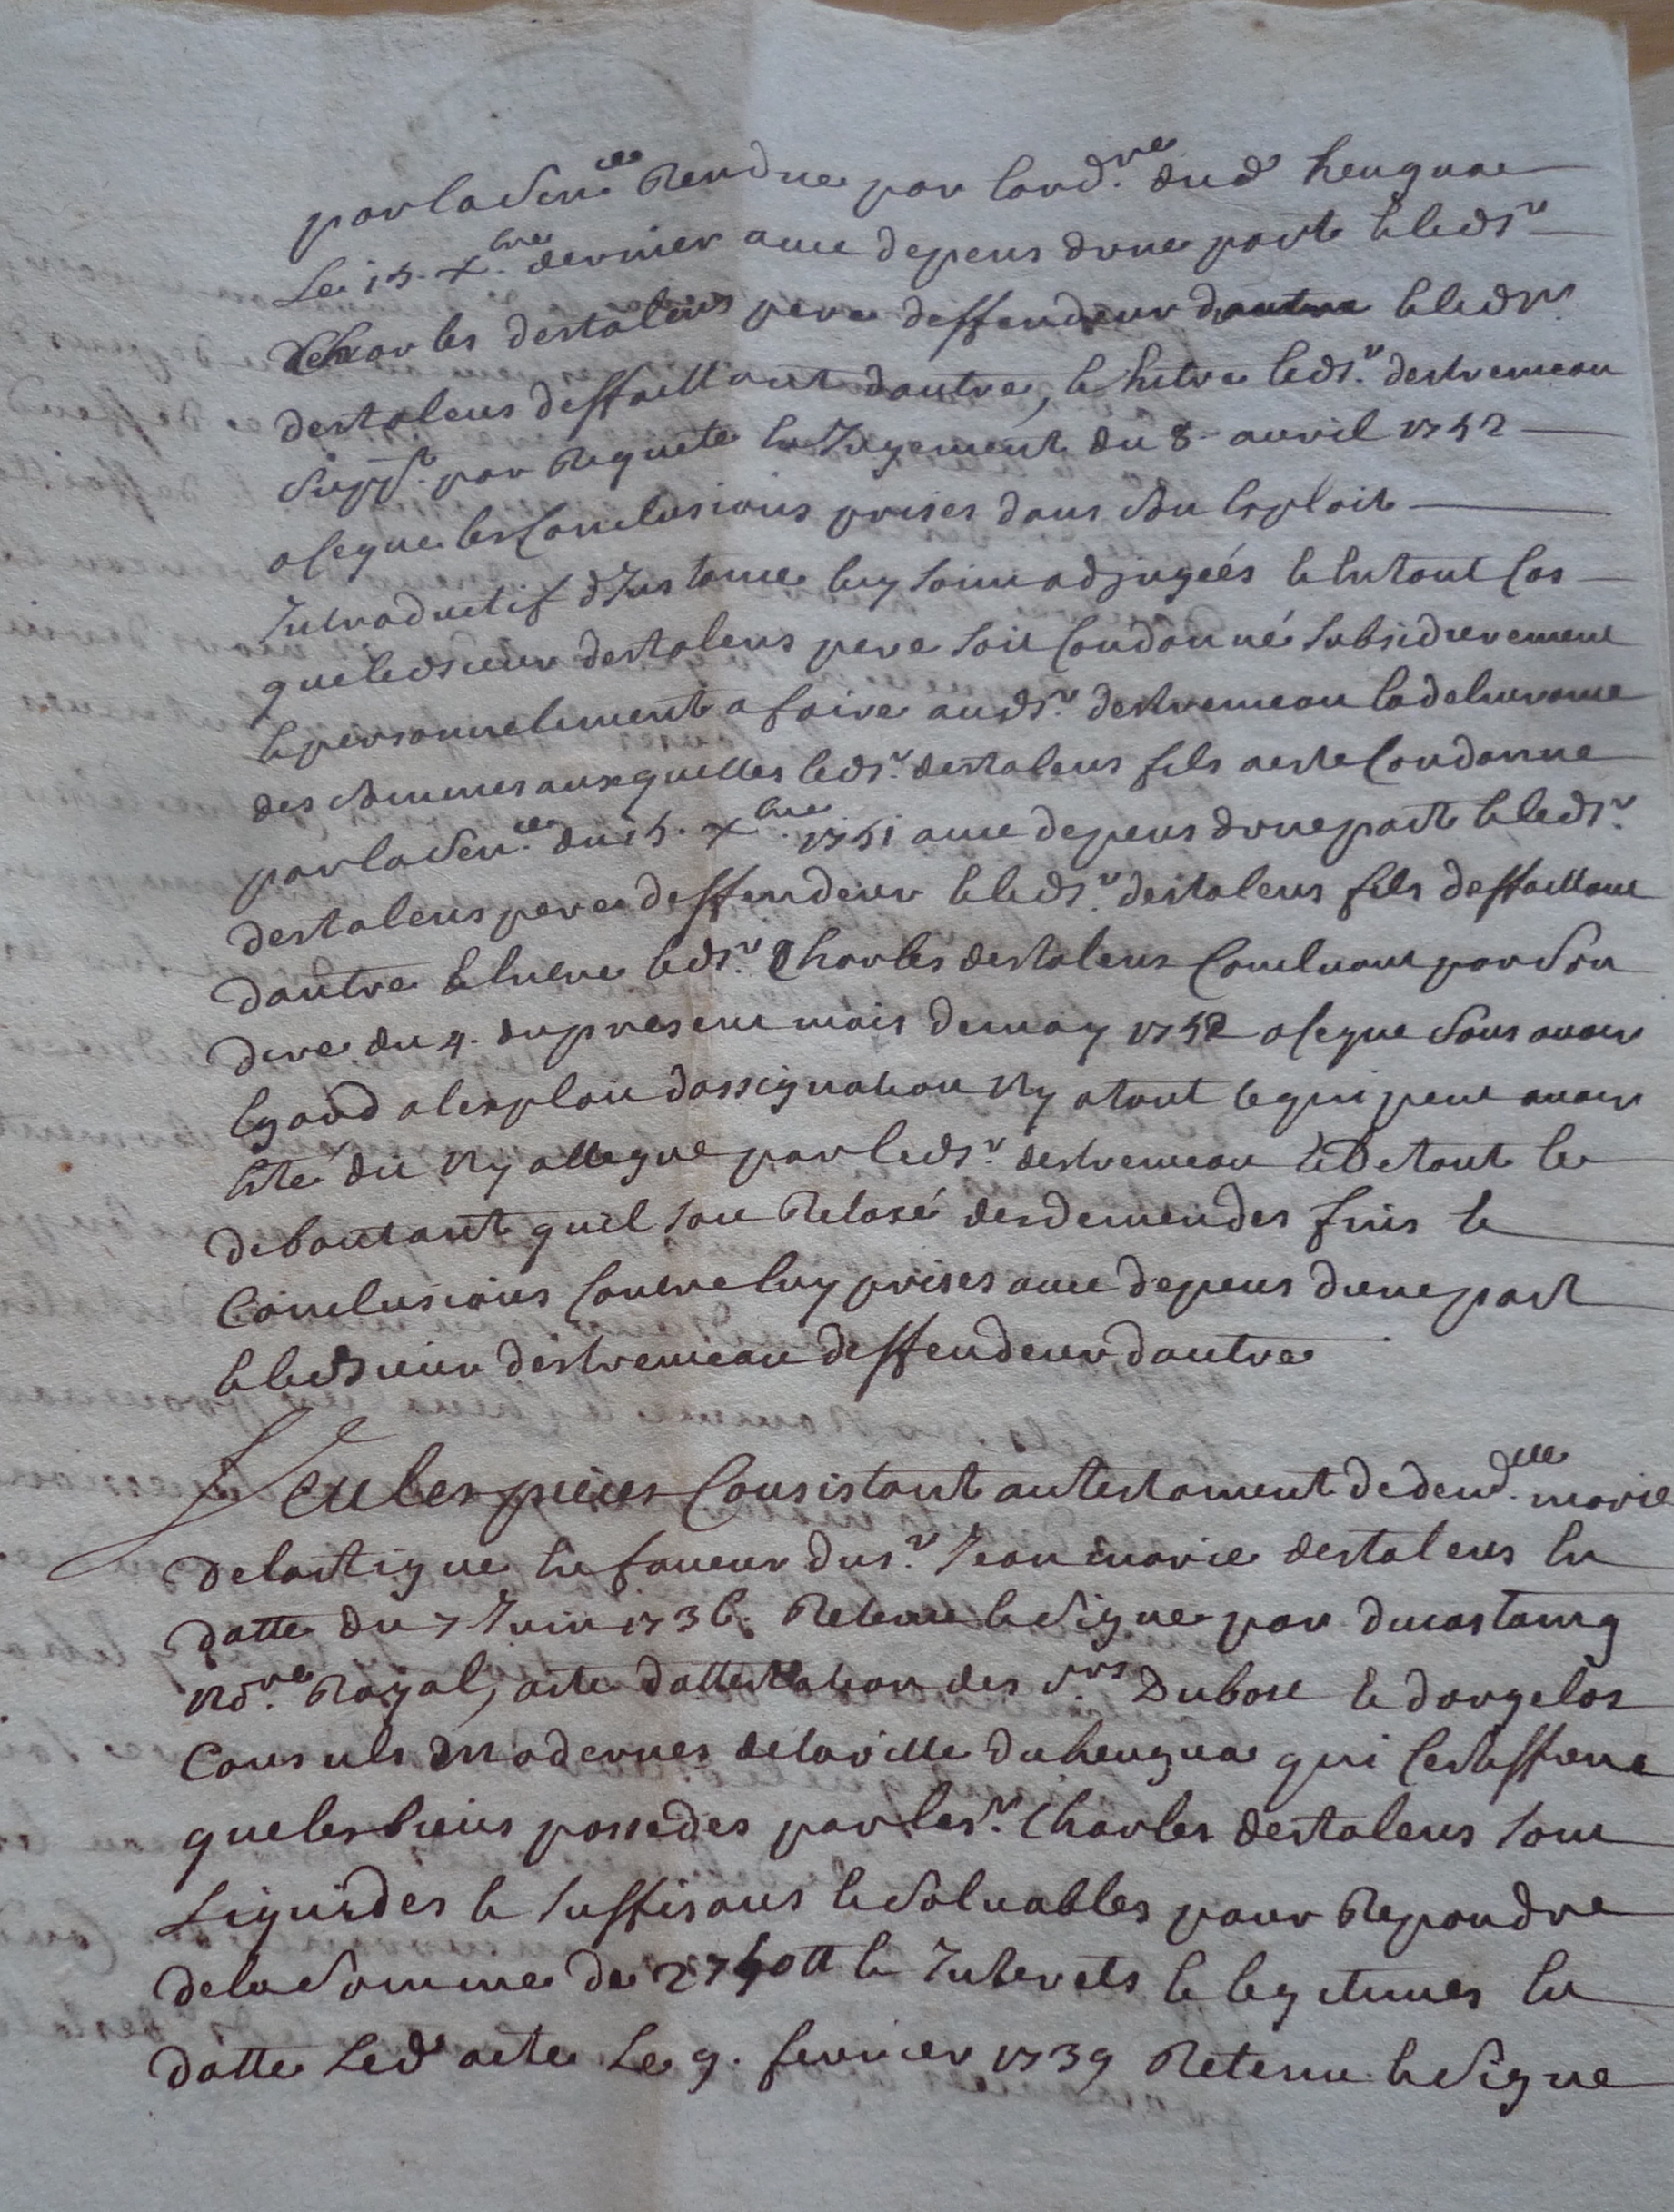 par la Sen.ce Rendue par lord.re dud heugua
Le 15. Xbre dernier avec depens dune part et led sr
Charles destalens pere deffendeur dautre et led sr
destalens deffaillant dautre, et entre led sr. destremeau
supp.t par Requete en Jugement du 8 avril 1752
a ce que les Conclusions prises dans son Exploit
Introductif dInstance luy soint adjugées et en tout Cas
que led sieur destalens pere soit Condamné subsidierement
et personnelement a faire aud sr. destremeau la delivrance
des sommes auxquelles led sr. destalens fils a esté Condamne
par la Sen.ce du 15. Xbre 1751 avec depens dune part et led sr.
destalens pere deffendeur et led sr. destalens fils deffaillant
dautre et entre led sr. Charles destalens Concluant par son
dire du 4. du present mois de may 1752 a ce que sans avoir
Egard a lexploit dassignation Ny a tout ce qui peut avoir
Eté dit Ny allegué par led sr. destremeau et De tout le
deboutant quil soit Relaxé des demendes fins et
Conclusions Contre luy prises avec depens dune part
et led sieur destremeau deffendeur dautre
Veu les pieces Consistant au testament de dem.lle marie
delartigue en faveur du sr. Jean marie destalens en
datte du 7 Juin 1736. Retenu et Signe par ducastaing
No.re Royal, acte dattestation des srs. Dubosc et dargelos
Consuls modernes de la ville du heugua qui Certiffient
que les biens possedes par le sr. Charles destalens sont
Liquides et suffisans et Solvables pour Repondre
de la Somme de 2750tt et Interets et legitimes en
datte Led acte Le 9. fevrier 1739 Retenu et Signe